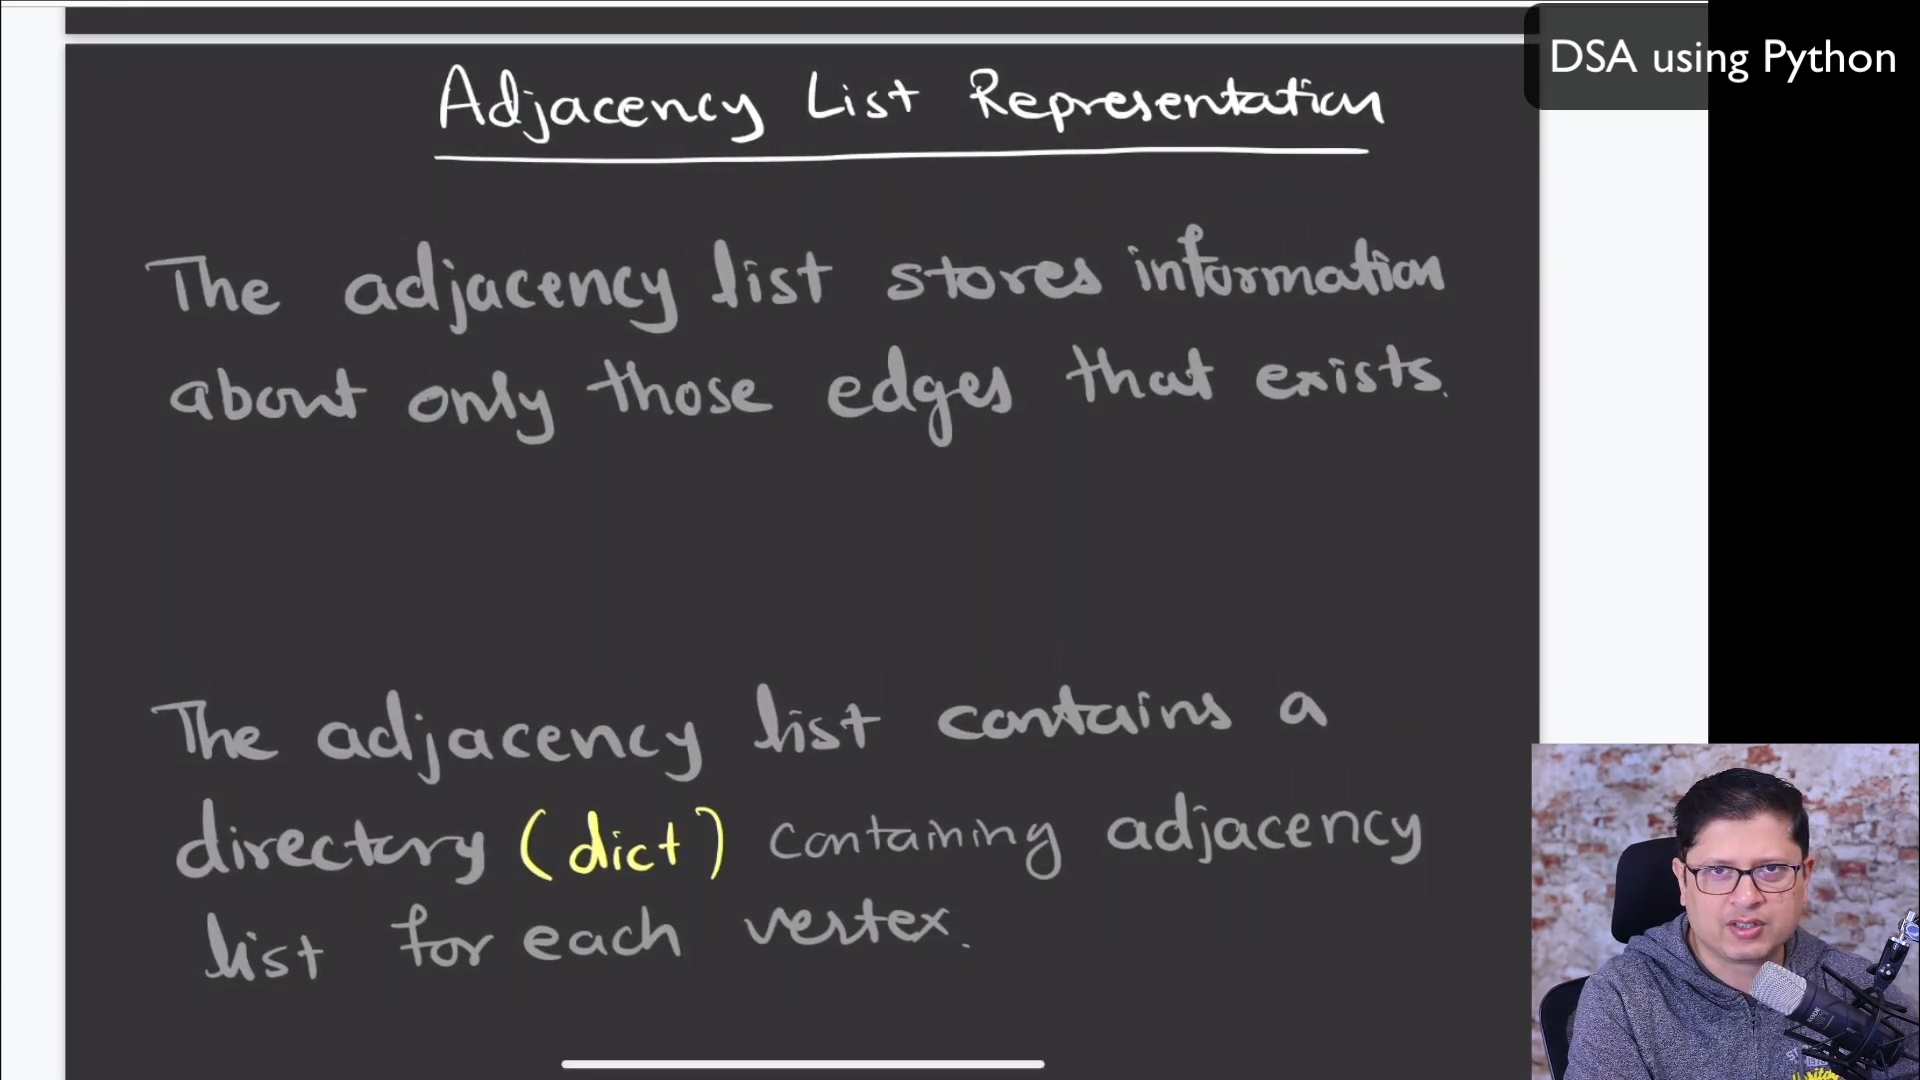 DSA using Python
Adjacency List Representation
The adjacency list stores information
about only those edges that exists.
The adjacency list contains a
directory (dict) containing adjacency
list for each vertex.